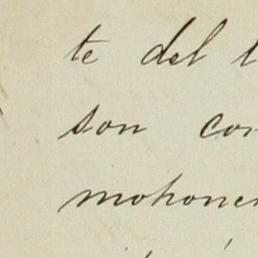 te del l
son con
mohonen